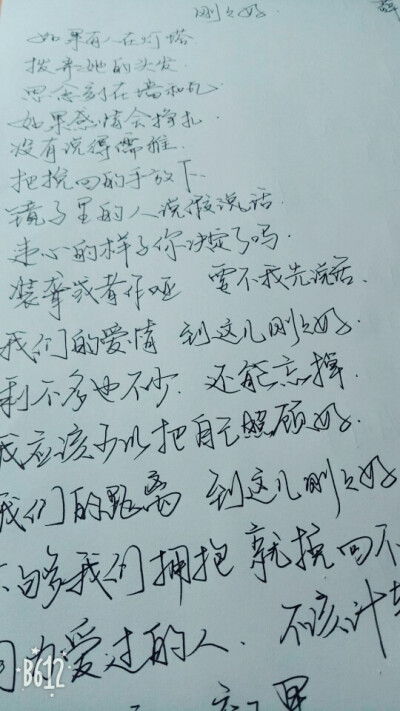 刚刚好 薛
如果有人在灯塔
拨弄她的头发
思念刻在墙和瓦
如果感情会挣扎
没有说得儒雅
把挽回的手放下
镜子里的人说假说话
违心的样子你决定了吗
装聋或者作哑 要不我先说话
我们的爱情 到这儿刚刚好
剩不多也不少 还能忘掉
我应该可以把自己照顾好
我们的距离 到这儿刚刚好
不够我们拥抱 就挽回不
用力爱过的人 不该计较
B612